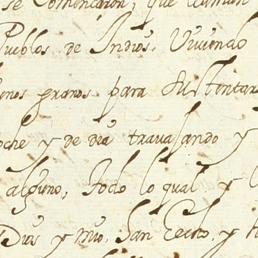 se comunicaron, que
Pueblos de Indios Viviendo
unos granos para sustentar
oche y de dia travajando y
alguno, todo lo qual y
Dios y mio, San